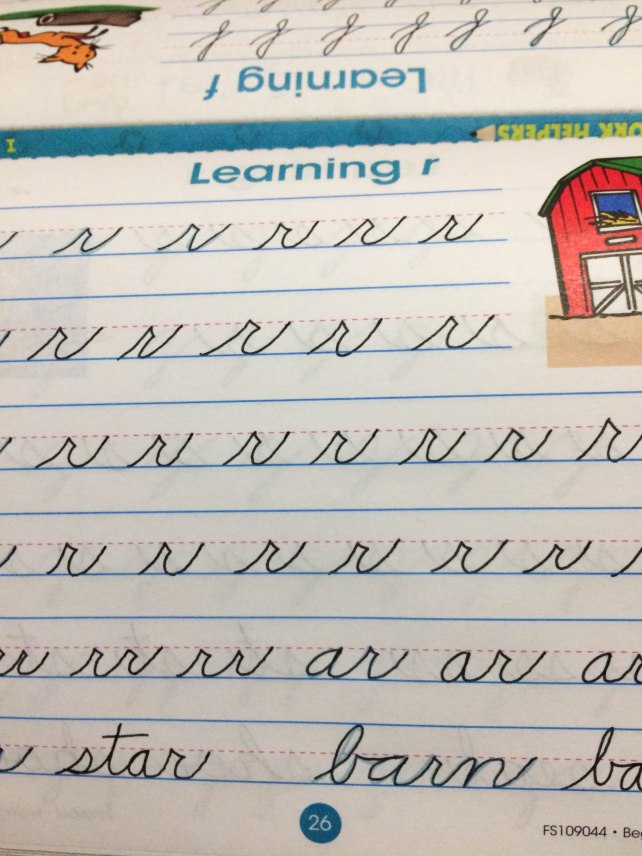 f f f f f f
Learning f
ORK HELPERS
Learning r
r r r r r
r r r r r
r r r r r r r
r r r r r r
rr rr rr ar ar ar
star barn ba
26
FS109044 • Be